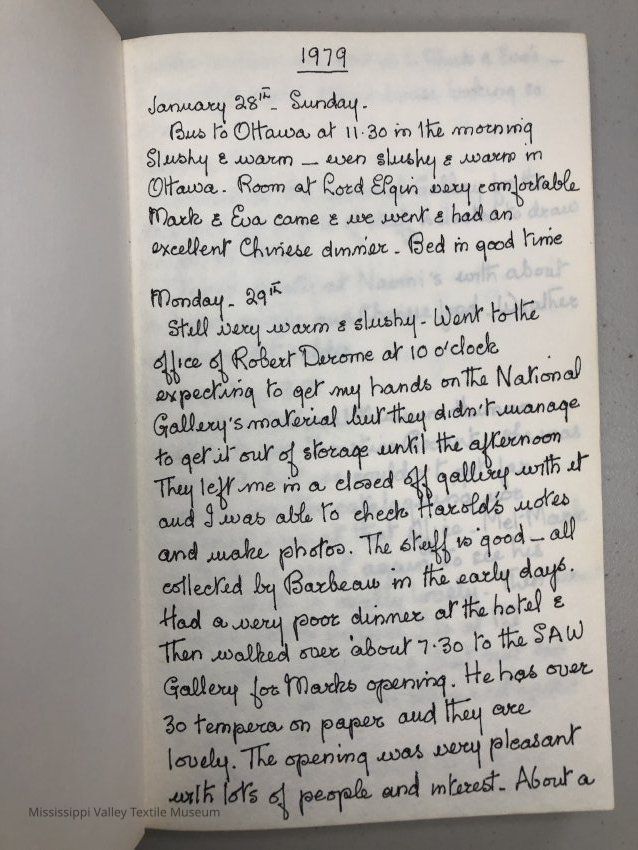 1979
January 28th - Sunday -
Bus to Ottawa at 11.30 in the morning
Slushy & warm - even slushy & warm in
Ottawa - Room at Lord Elgin very comfortable
Mark & Eva came & we went & had an
excellent Chinese dinner - Bed in good time
Monday - 29th
Still very warm & slushy - Went to the
office of Robert Derome at 10 o'clock
expecting to get my hands on the National
Gallery's material but they didn't manage
to get it out of storage until the afternoon
They left me in a closed off gallery with it
and I was able to check Harold's notes
and make photos. The stuff is good - all
collected by Barbeau in the early days.
Had a very poor dinner at the hotel &
Then walked over about 7.30 to the SAW
Gallery for Marks opening. He has over
30 tempera on paper and they are
lovely. The opening was very pleasant
with lots of people and interest - About a
Mississippi Valley Textile Museum